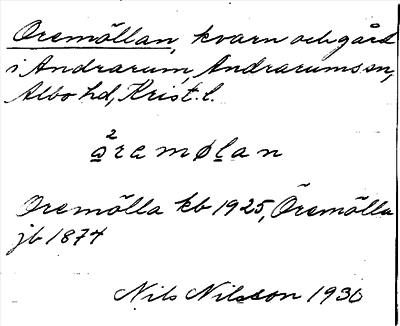 Oremöllan, kvarn och gård
i Andrarum, Andrarums sn,
Albo hd, Krist. l.
²åremølan
Oremölla kb 1925, Öremölla
jb 1874
Nils Nilsson 1930